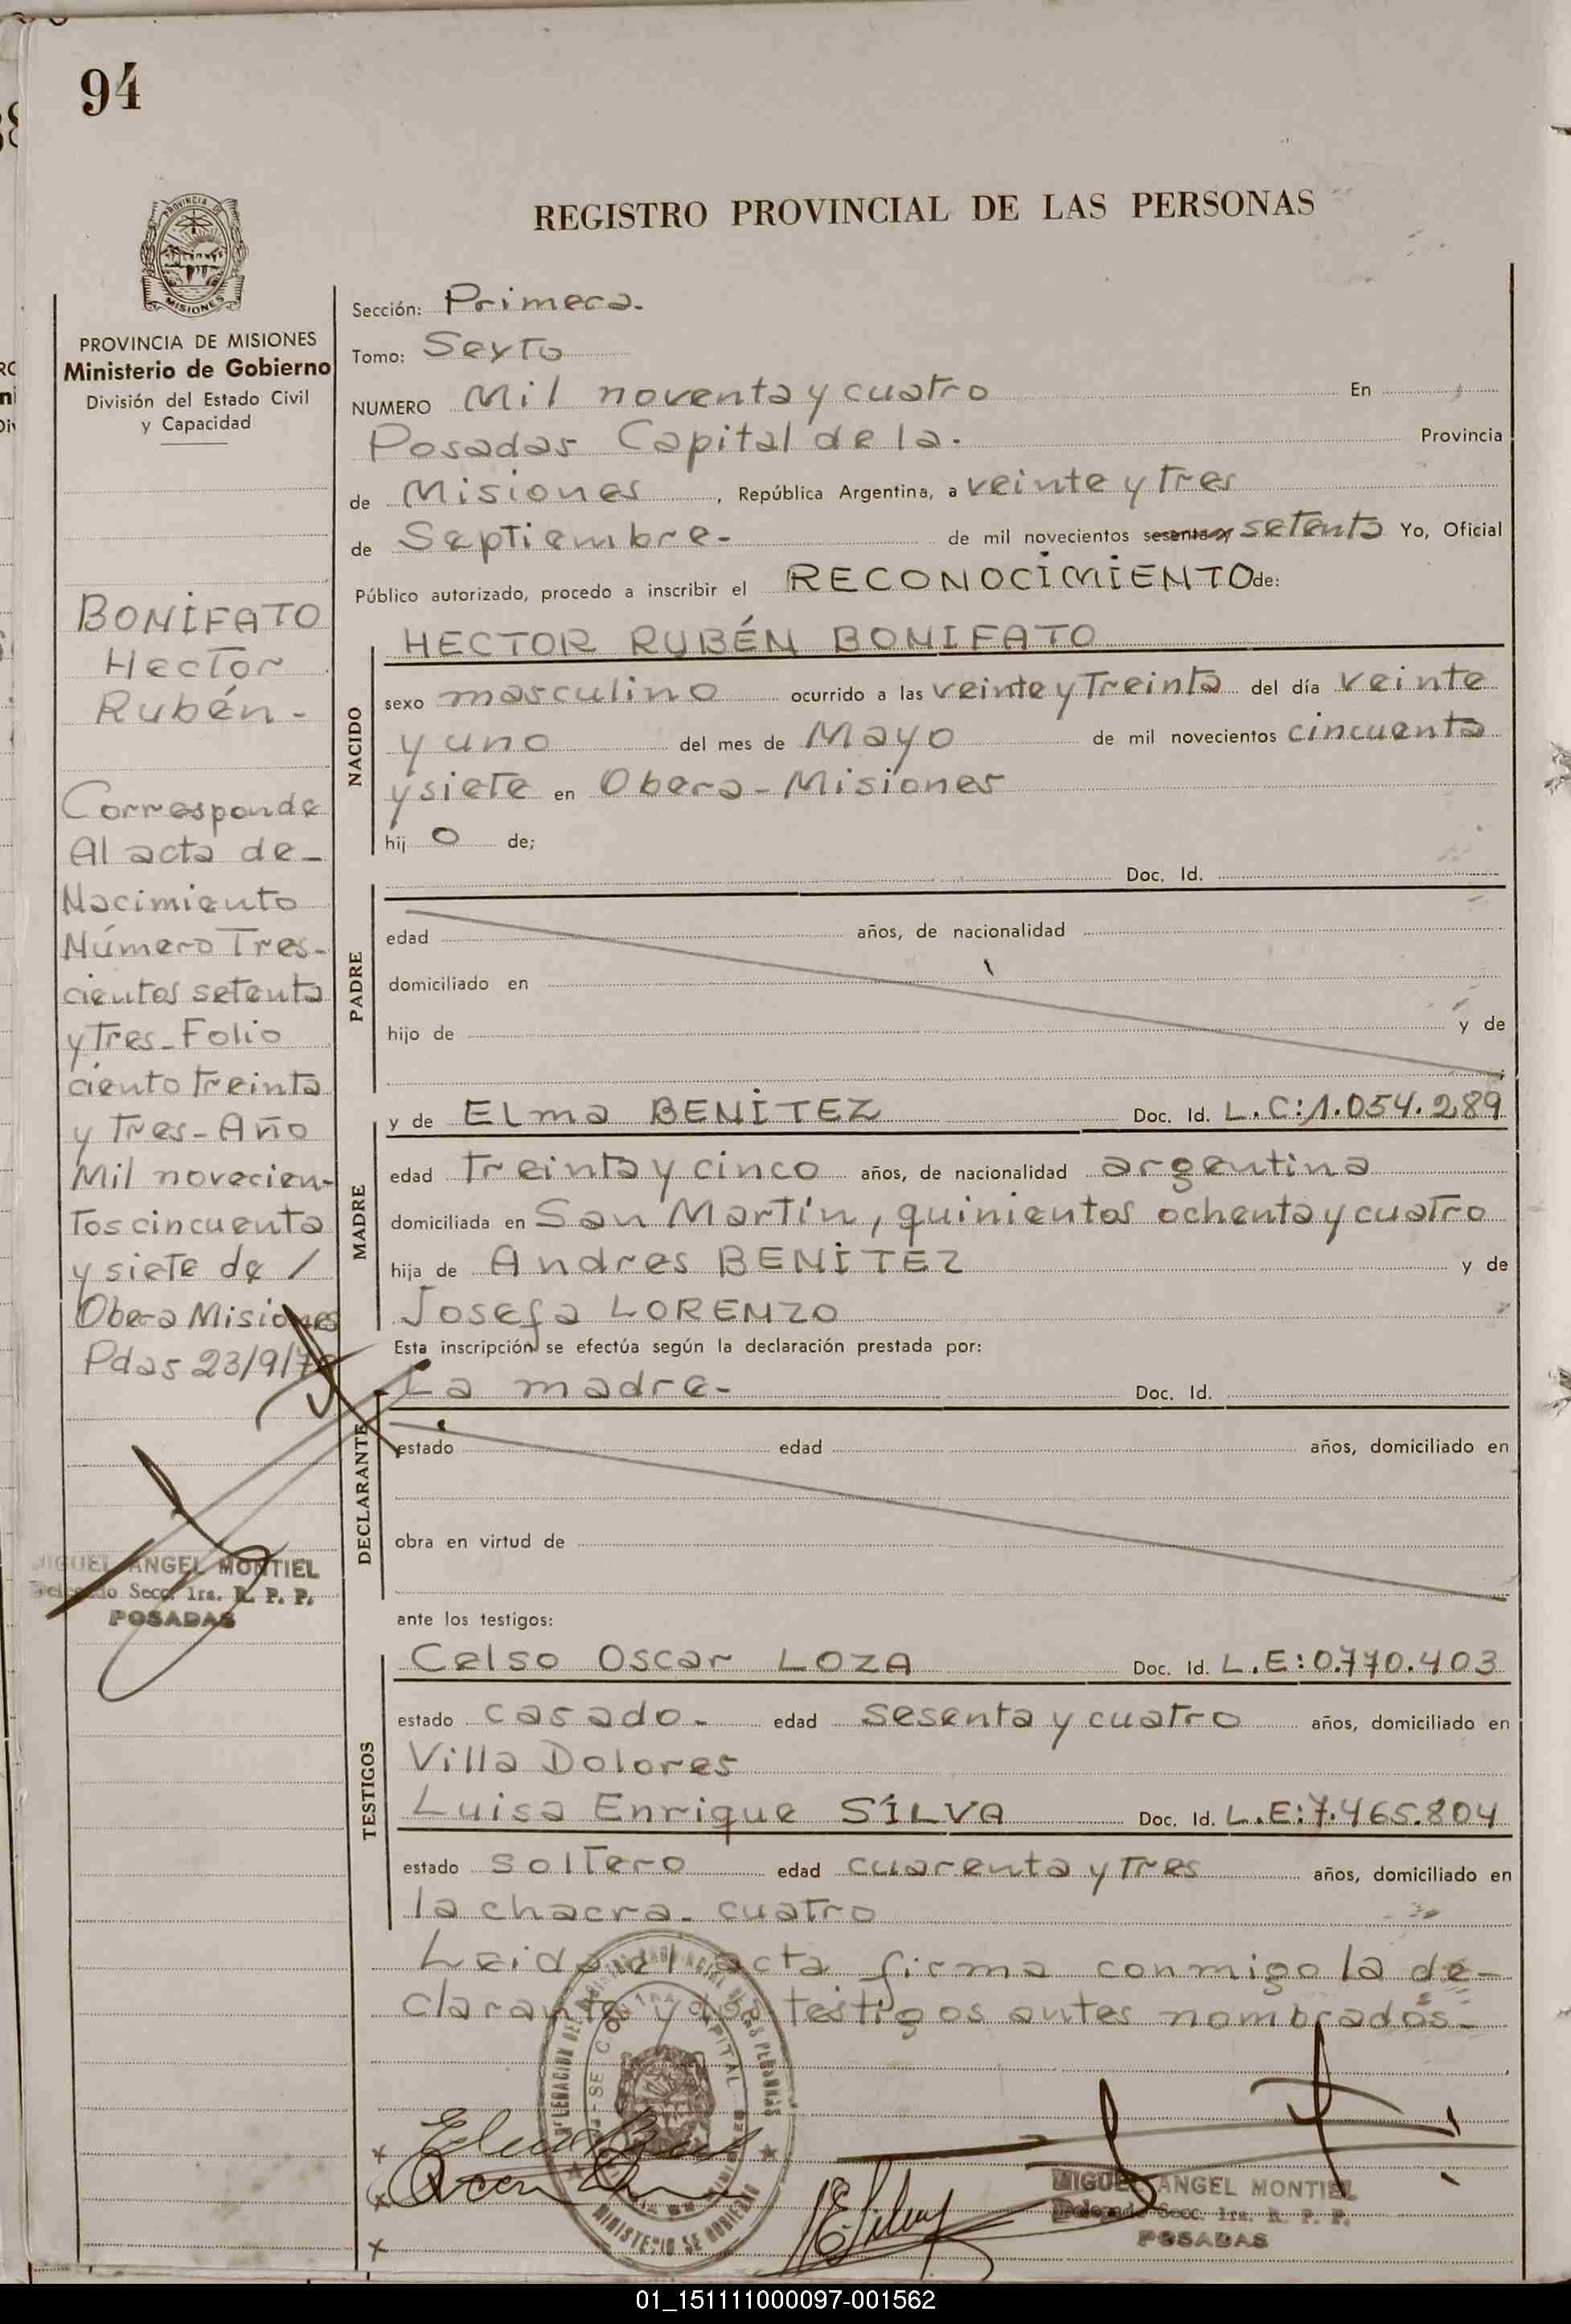 94
PROVINCIA DE
MISIONES
PROVINCIA DE MISIONES
Ministerio de Gobierno
División del Estado Civil
y Capacidad
BONIFATO
Hector
Rubén-
Corresponde
Al acta de-
Nacimiento
Número Tres-
cientos setenta
y Tres-Folio
ciento treinta
y Tres-Año
Mil novecien-
tos cincuenta
y siete de /
Obera Misiones
Pdas 23/9/70
MIGUEL ANGEL MONTIEL
Delegado Secc. 1ra. R. P. P.
POSADAS
REGISTRO PROVINCIAL DE LAS PERSONAS
Sección: Primera.
Tomo: Sexto
NUMERO Mil noventa y cuatro En
Posadas Capital de la. Provincia
de Misiones, República Argentina, a veinte y Tres
de Septiembre- de mil novecientos sesenta y setenta Yo, Oficial
Público autorizado, procedo a inscribir el RECONOCIMIENTO de:
NACIDO
HECTOR RUBÉN BONIFATO
sexo masculino ocurrido a las veinte y Treinta del día veinte
y uno del mes de Mayo de mil novecientos cincuenta
y siete en Obera-Misiones
hij o de;
PADRE
Doc. Id.
edad años, de nacionalidad
domiciliado en
hijo de y de
MADRE
y de Elma BENITEZ Doc. Id. L.C:1.054.289
edad Treinta y cinco años, de nacionalidad argentina
domiciliada en San Martín, quinientos ochenta y cuatro
hija de Andres BENITEZ y de
Josefa LORENZO
Esta inscripción se efectúa según la declaración prestada por:
DECLARANTE
La madre- Doc. Id.
estado edad años, domiciliado en
obra en virtud de
ante los testigos:
TESTIGOS
Celso Oscar LOZA Doc. Id. L.E:0.770.403
estado casado- edad sesenta y cuatro años, domiciliado en
Villa Dolores
Luisa Enrique SILVA Doc. Id. L.E:7.465.804
estado soltero edad cuarenta y Tres años, domiciliado en
la chacra- cuatro
Leida el acta firma conmigo la de-
clarante y dos testigos antes nombrados-
MINISTERIO DE GOBIERNO
MIGUEL ANGEL MONTIEL
Delegado Secc. 1ra. R. P. P.
POSADAS
01_151111000097-001562